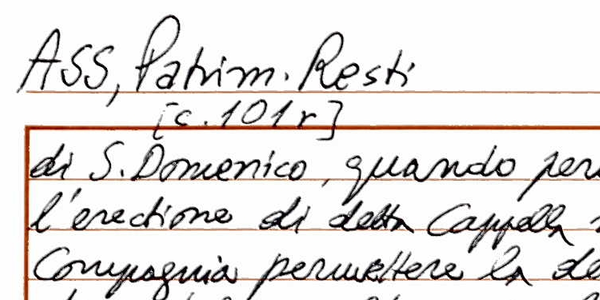 ASS, Patrim. Resti
[c. 101r]
di S. Domenico, quando per
l'erectione di detta Cappella
Compagnia permettere la de